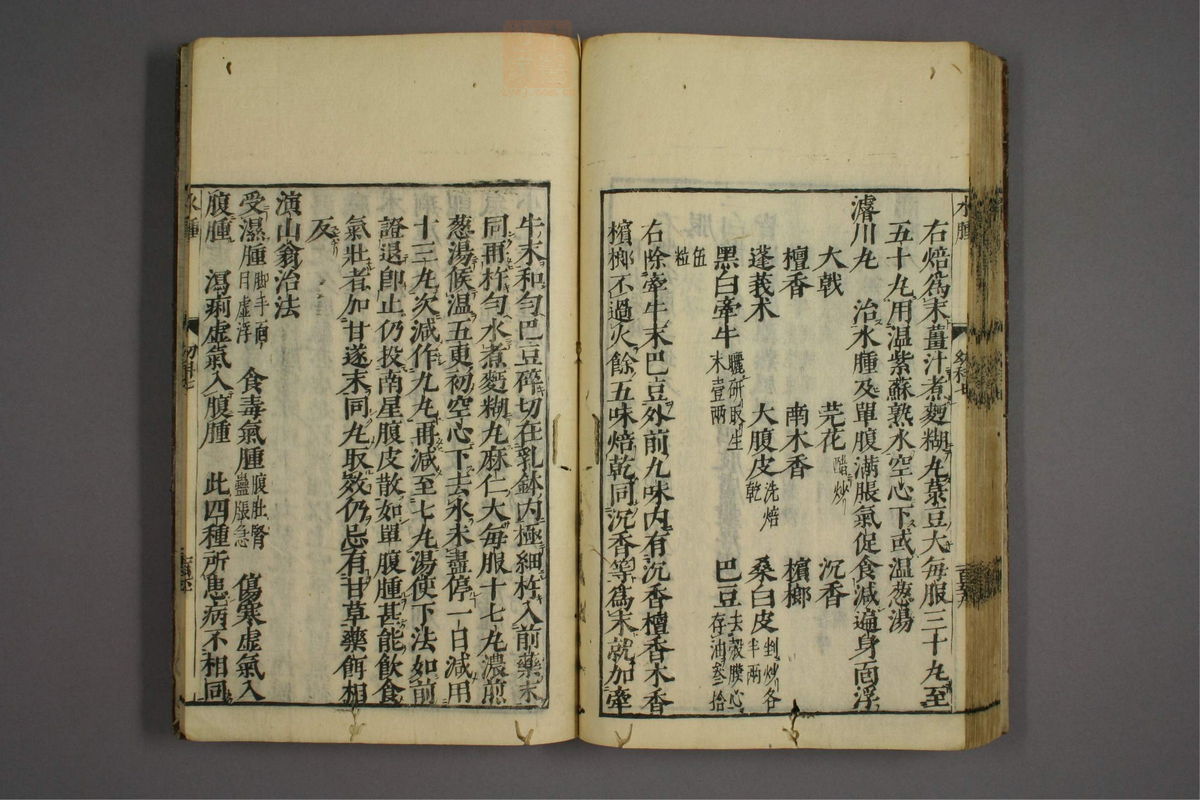 右焙爲末薑汁煮麵糊丸菉豆大每服三十丸至
五十丸用溫紫蘇熟水空心下或溫葱湯
濬川丸 治水腫及單腹滿脹氣促食減遍身面浮
大戟 芫花醋炒 沉香
檀香 南木香 檳榔
蓬莪朮 大腹皮洗焙乾 桑白皮剉炒各半兩
黑白牽牛曬研取生末壹兩 巴豆去殼膜心存油叁拾
伍粒
右除牽牛末巴豆外前九味内有沉香檀香木香
檳榔不過火餘五味焙乾同沉香等爲末就加牽
牛末和勻巴豆碎切在乳鉢内極細杵入前藥末
同再杵勻水煮麵糊丸麻仁大每服十七丸濃煎
葱湯候溫五更初空心下去水未盡停一日減用
十三丸次減作九丸再減至七丸湯使下法如前
證退卽止仍投南星腹皮散如單腹腫甚能飲食
氣壯者加甘遂末同丸取效仍忌有甘草藥餌相
反
演山翁治法
受濕腫脚手面目虛浮 食毒氣腫腹肚腎蠱脹急 傷寒虛氣入
腹腫 瀉痢虛氣入腹腫 此四種所患病不相同
水腫
水腫
幼科七